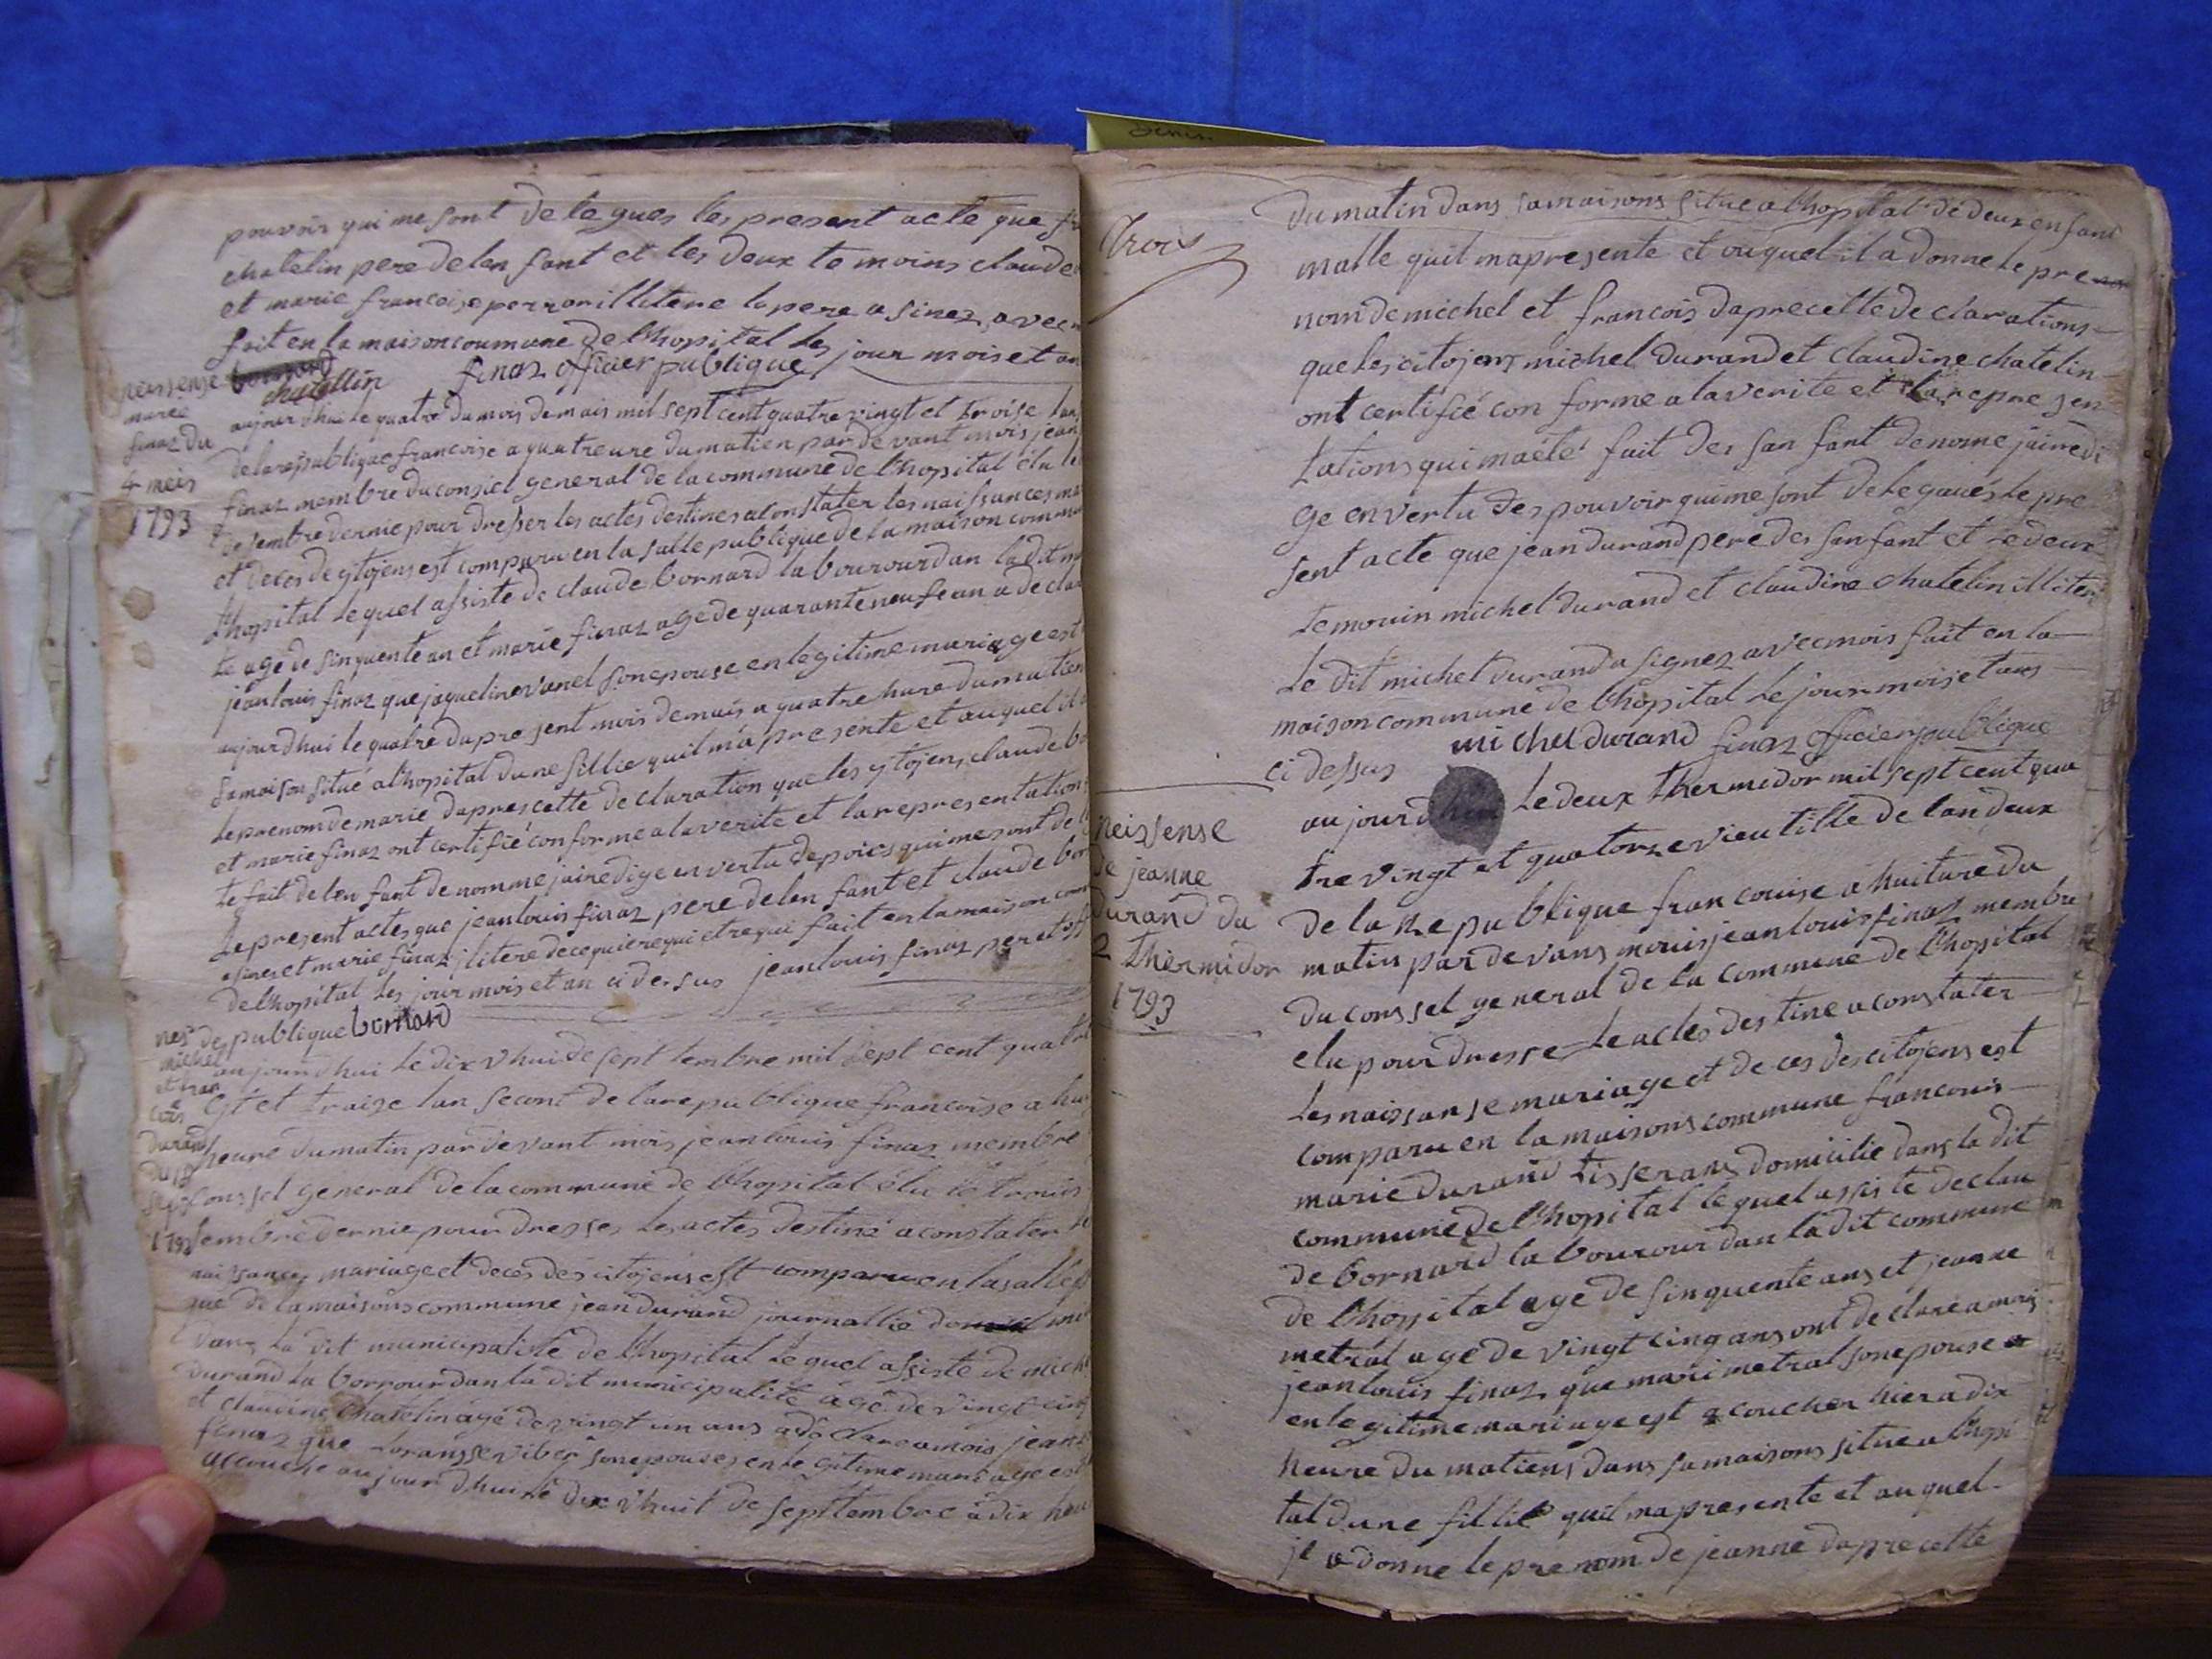 pouvoir qui me sont delegues les present acte que
chatelin pere delen fant et les deux te moins claude
et marie francoise perrorillitere le pere a sinez avec
fait en la maison coumune de lhopital les jour mois et an
chatellin finaz officier publique
neissense
marie
finaz du
4 meis
1793
aujourdhui le quatre du mois de mais mil sept cent quatre vingt et troise lan
delarepublique francoise a quatreure du matien par devant mois jean
finaz membre du consiel general de la commune de lhopital élu le
desembre dernie pour dresser les actes destines a constater les naissances
et deces de cytojens est comparu en la salle publique de la maison commu
lhopital lequel assiste de claude bornard labourourdan ladit
te age de sinquente an et marie finaz age de quarante neuf ean a declar
jean louis finaz que jaqueline vanel son epouse en legitime mariage est
aujourdhui le quatre du present mois demais a quatre hure du matien
samaison situé alhopital dune fillie quil ma presente et auquel il
leprenom demarie dapres cette declaration que les cytojens claude bo
et marie finaz ont certifié conforme a la verite et la representation
te fait delen fant de nomme jairedige en vertu depoics qui mesont de
lepresent actes que jean louis finaz pere delen fant et claude bor
a sines et marie finaz ilitere dece quiere qui etre qui fait en lamaison com
de lhopital les jour mois et an ci dersus jean louis finaz per et off
de publique bornard
nes
michel
et fran
cois
durand
du 18
sept
1793
aujourdhui le dix vhui de sept tembre mil sept cent quatre
gt et traize lan secont de larepublique francoise a hui
heure dumatin pardevant mois jean louis finaz membre
conssel general de la commune de lhopital élu le trois
sembre dernie pour dresses les actes destiné a constater
naissances mariage et deces des citojens est comparu en lasalle
que de lamaisons commune jean durand journallie
dans la dit municipalité de lhopital lequel assiste de mich
durand la borrour dan la dit municipalité agé de vingt cinq
et claudine chatelin agé des vingt un ans a declare a mois jean
finaz que fransse viber son epouses en legitime mariage est
accouche aujourdhui le dix vhuit de septtembre a dix heu
trois
du matin dans samaisons situe a lhopital de deux en fant
malle quil mapresente et ouquel il a donne le pre
nom de michel et francois dapre cette de clarations
que les citojens michel durand et claudine chatelin
ont certifié con forme a la verite et la repre sen
tations qui maété fait des fan fant de nome jairedi
ge en vertu des pouvoir qui me sont delegaués le pre
sent acte que jean durand pere des fan fant et le deux
temouin michel durand et claudine chatelin illiter
le dit michel durand a signez avec mois fait en la
maison commune de lhopital le jour mois et ans
ci dessus michel durand finaz officier publique
neissense
de jeanne
durand du
2 thermidor
1793
aujourdhui le deux thermidor mil sept cent qua
tre vingt et quatorze vieu tille de lan deux
de la re publique fran couise a huiture du
matin par de vans mouis jean louis finaz membre
du conssel general de la commune de lhopital
elu pour dresse le actes destine a constater
les naissanse mariage et de ces des citojens est
comparu en la maisons commune francouis
marie durand tisserans domicilie dans la dit
commune de lhopital le quel assis te de clau
de bornard la bourour dan la dit commune
de lhopital age de sinquente ans et jeanne
metral agé de vingt cinq ans ont declare a mois
jean louis finaz que mari metral son epouse
en legitime mariage est acoucher hier a dix
heure du matiens dans samaisons situe a lhopi
tal dune fillie quil mapresente et au quel
je a donne le pre nom de jeanne dapre cette